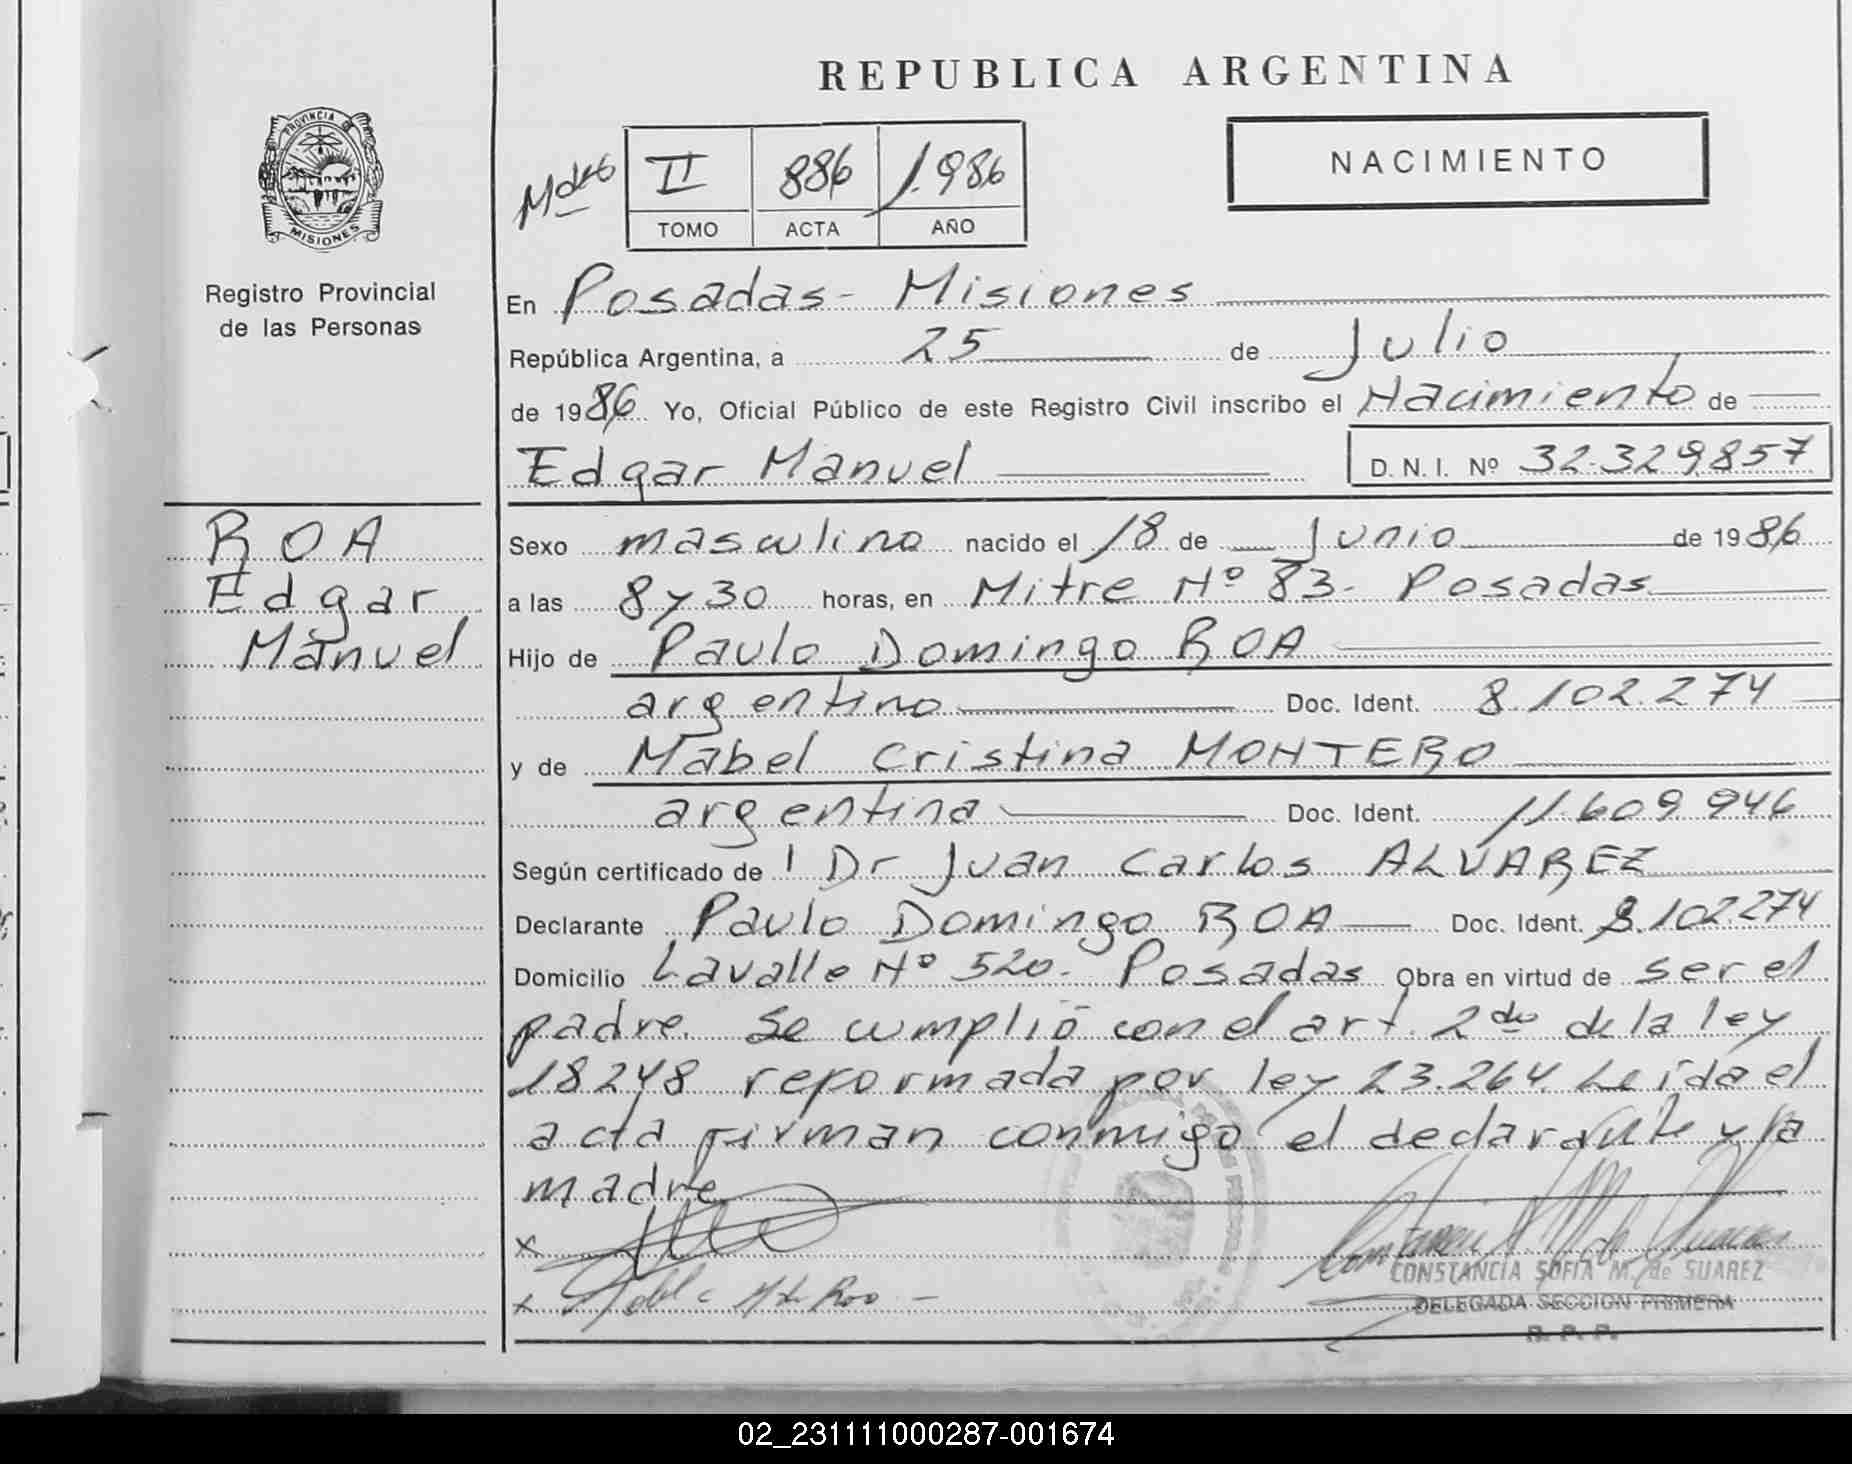 REPUBLICA ARGENTINA
PROVINCIA
MISIONES
Registro Provincial
de las Personas
II 886 1.986
TOMO ACTA AÑO
NACIMIENTO
En Posadas - Misiones
República Argentina, a 25 de Julio
de 1986 Yo, Oficial Público de este Registro Civil inscribo el Nacimiento de
Edgar Manuel D. N. I. Nº 32.329.857
ROA
Edgar
Manuel
Sexo masculino nacido el 18 de Junio de 1986
a las 8 y 30 horas, en Mitre Nº 83 - Posadas
Hijo de Paulo Domingo ROA
argentino Doc. Ident. 8.102.274
y de Mabel Cristina MONTERO
argentina Doc. Ident. 11.609.946
Según certificado de l Dr Juan Carlos ALVAREZ
Declarante Paulo Domingo ROA Doc. Ident. 8.102.274
Domicilio Lavalle Nº 520 - Posadas Obra en virtud de ser el
padre. Se cumplió con el art. 2do de la ley
18248 reformada por ley 23.264. Leída el
acta firman conmigo el declarante y la
madre
x
x
CONSTANCIA SOFIA M. de SUAREZ
DELEGADA SECCION PRIMERA
R. P. P.
02_231111000287-001674